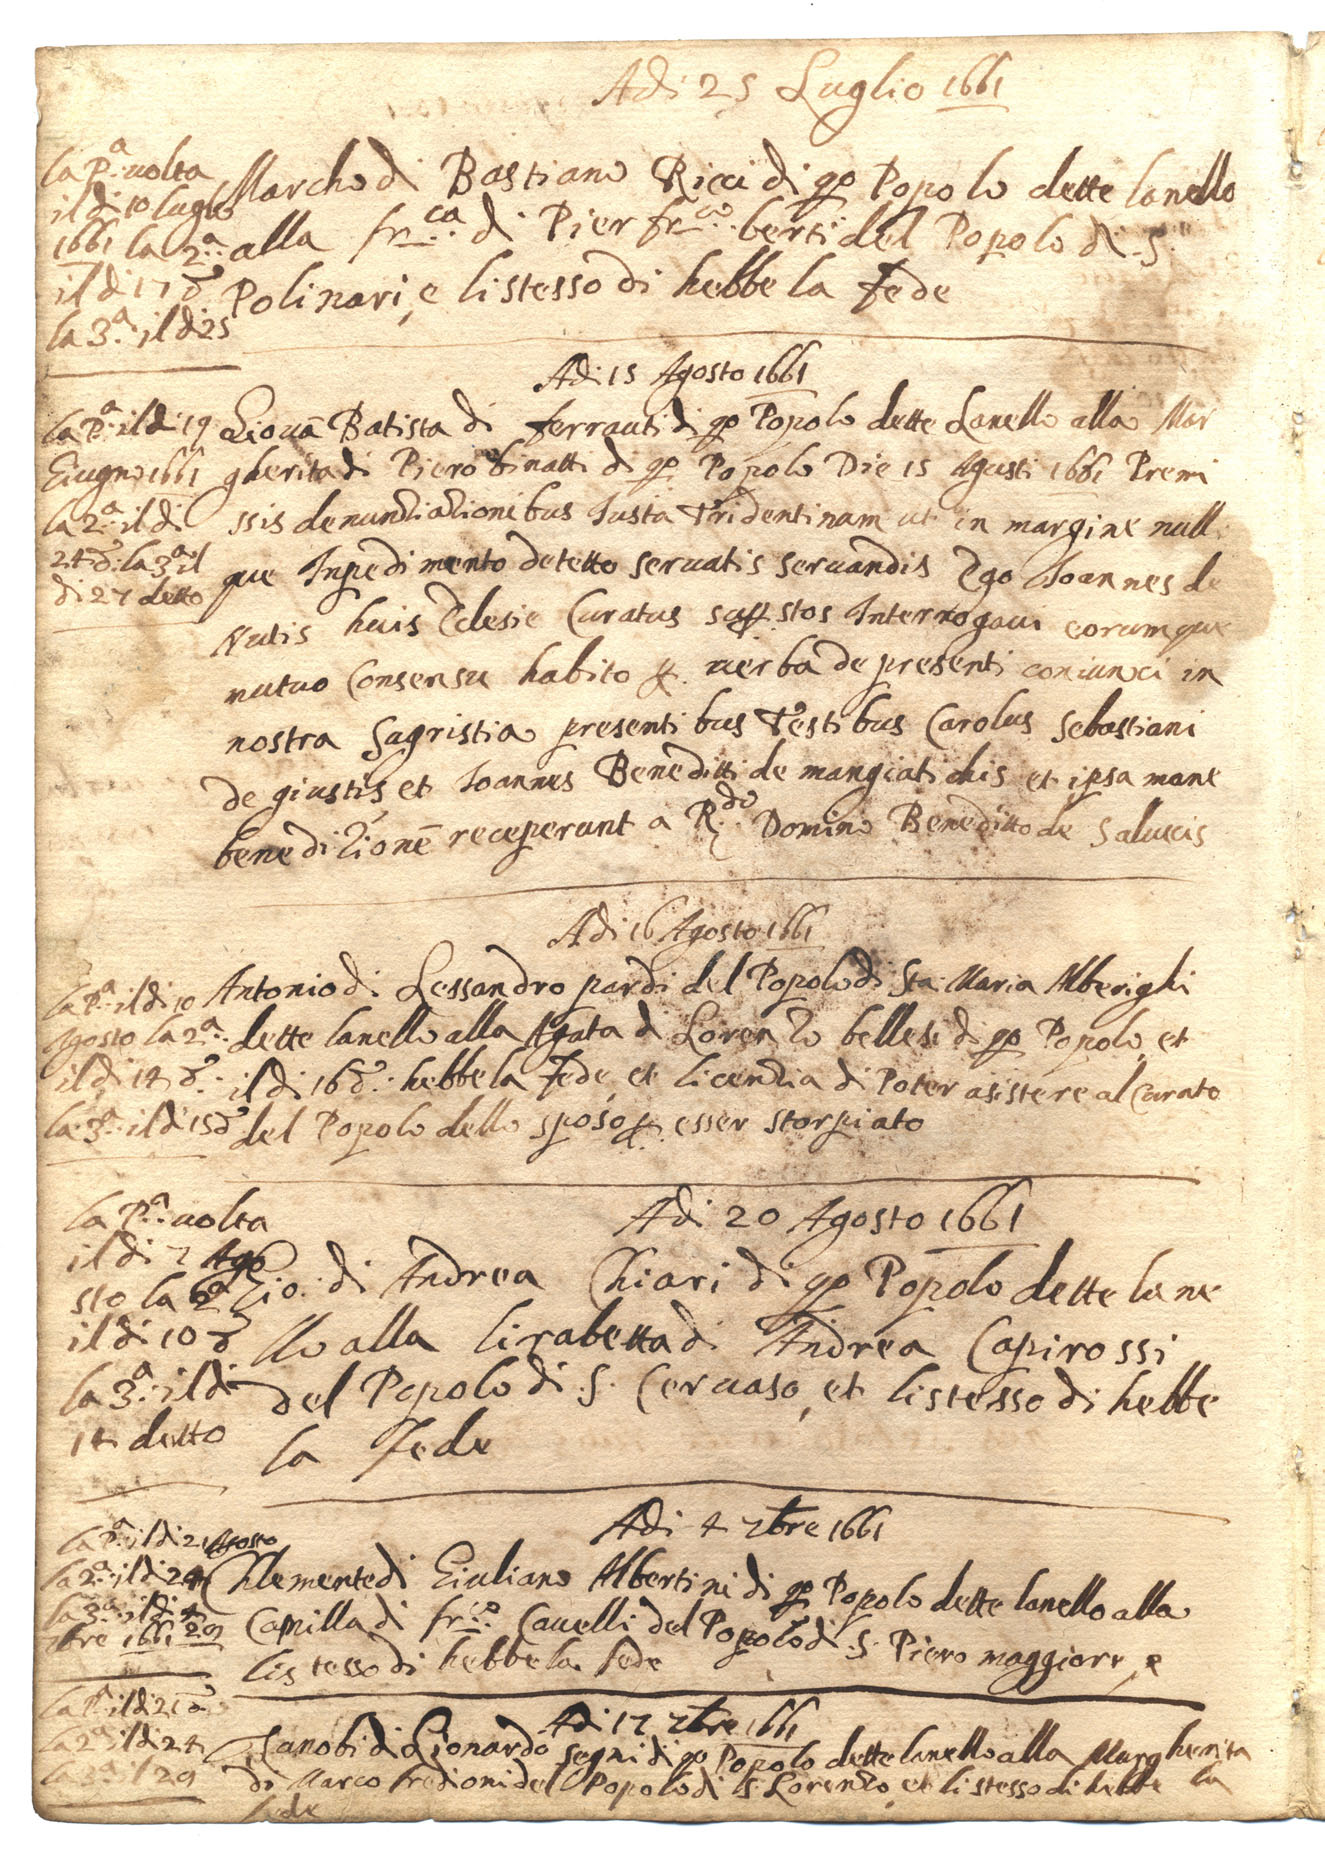 Adi 25 Luglio 1661
la P.a uolta
il di 10 luglo
1661 la 2.a
il di 17 d.o
la 3.a il di 25
Marcho di Bastiano Ricci di qo Popolo dette lanello
alla fr.ca di Pier fr.co berti del Popolo di .S.
Polinari, e listesso di hebbe la fede
Adi 15 Agosto 1661
la P.a il di 19
Giugno 1661
la 2.a il di
24 d.o la 3.a il
di 27 detto
Giouã Batista di ferrauti di qo Popolo dette Lanello alla Mar
gherita di Piero binatti di qo Popolo Die 15 Agusti 1661 Premi
ssis denuntiationibus Justa Tridentinam ut in margine null
que Inpedimento detetto seruatis seruandis Ego Joannes de
Nutis huis Eclesie Curatus Interrogaui eorumque
mutuo Consensu habito p. uerba de presenti coniunci in
nostra Sagristia presentibus Testibus Carolus Sebastiani
de giustis, et Joannes Beneditti de mangiatichis et ipsa mane
beneditionẽ receperunt a R.do Domino Beneditto de Saluccis
Adi 16 Agosto 1661
la P.a il di 10
Agosto la 2.a
il di 14 d.o
la 3.a il di 15 d.o
Antonio di Lessandro pardi del Popolo di Sta Maria Alberighi
dette lanello alla Agata di Lorenzo bellesi di qo Popolo, et
il di 16 d.o hebbe la fede, et licentia di Poter asistere al Curato
del Popolo dello sposo p. esser storpiato
Adi 20 Agosto 1661
la P.a uolta
il di 7 Ago
sto la 2a
il di 10 d.o
la 3.a il di
14 detto
Gio: di Andrea Chiari di qo Popolo dette lane
llo alla lisabetta di Andrea Capirossi
del Popolo di .S. Ceruaso, et listesso di hebbe
la fede
Adi 4 7bre 1661
la P.a il di 21 Agosto
la 2.a il di 24
la 3.a il di 4
7bre 1661 29
Chlemente di Giuliano Albertini di qo Popolo dette lanello alla
Camilla di fr.co Cauelli del Popolo di .S. Piero maggiore, e
listesso di hebbe la fede
Adi 17 7bre 1661
la P.a il di 21 d.o
la 2.a il di 24
la 3.a il 29
Zanobi di Lionardo Segni di qo Popolo dette lanello alla Margherita
di Marco fredioni del Popolo di S. Lorenzo, et listesso di hebbe la
fede